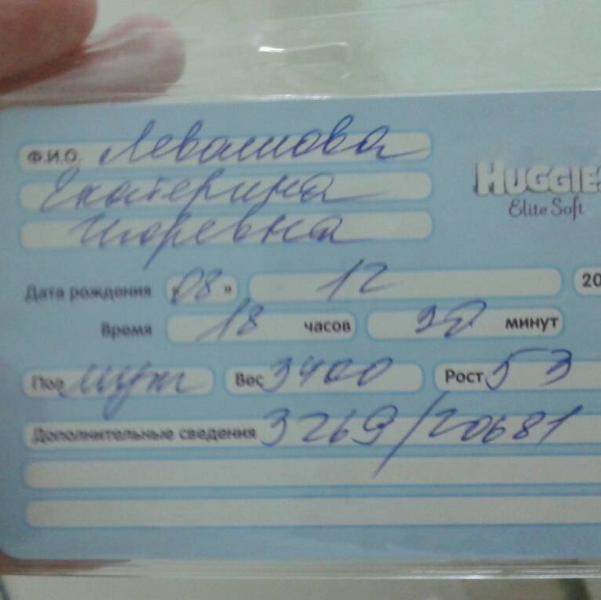 Ф.И.О. Левашова
Екатерина
Игоревна
HUGGIES
Elite Soft
Дата рождения «08» 12 20
Время 18 часов 30 минут
Пол муж Вес 3400 Рост 53
Дополнительные сведения 3269/20681